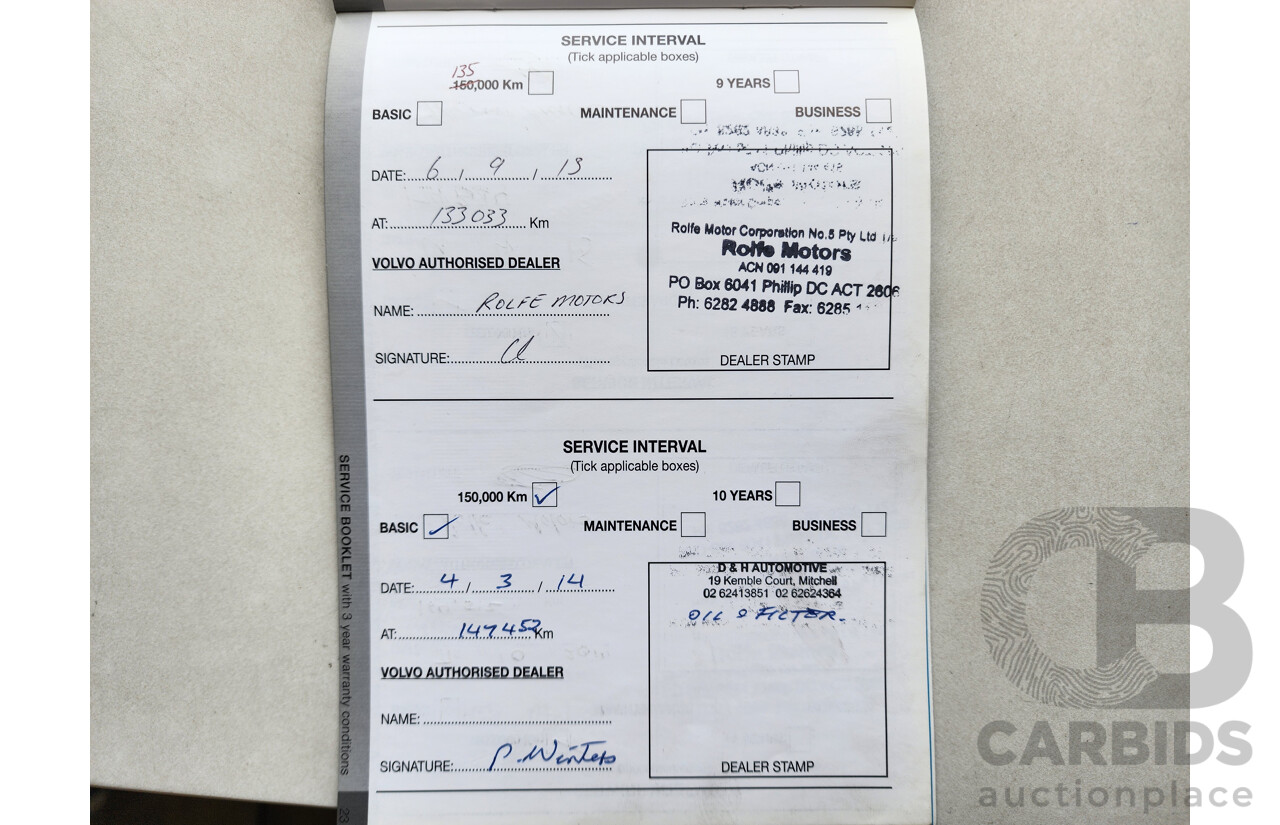 SERVICE INTERVAL
(Tick applicable boxes)
135
150,000 Km
9 YEARS
BASIC
MAINTENANCE
BUSINESS
DATE: 6 / 9 / 13
AT: 133033 Km
VOLVO AUTHORISED DEALER
NAME: ROLFE MOTORS
SIGNATURE:
Rolfe Motor Corporation No.5 Pty Ltd
Rolfe Motors
ACN 091 144 419
PO Box 6041 Phillip DC ACT 2606
Ph: 6282 4888 Fax: 6285
DEALER STAMP
SERVICE INTERVAL
(Tick applicable boxes)
150,000 Km ✓
10 YEARS
BASIC ✓
MAINTENANCE
BUSINESS
DATE: 4 / 3 / 14
AT: 147452 Km
VOLVO AUTHORISED DEALER
NAME:
SIGNATURE: P. Winters
D & H AUTOMOTIVE
19 Kemble Court, Mitchell
02 62413851 02 62624364
OIL & FILTER.
DEALER STAMP
SERVICE BOOKLET with 3 year warranty conditions
23
CB
CARBIDS
auctionplace